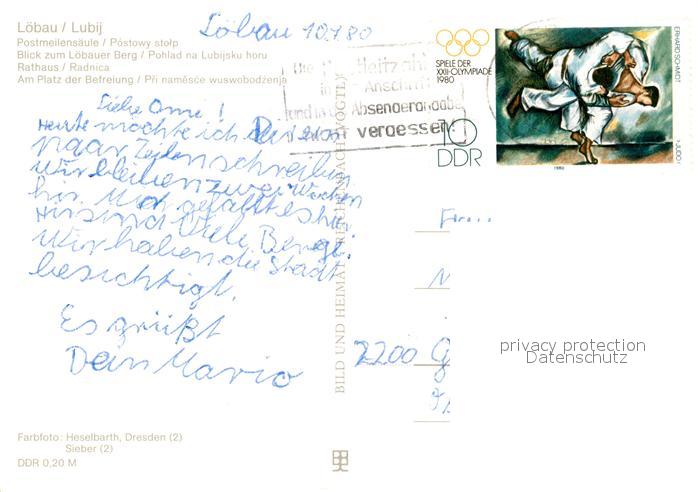 Löbau / Lubij
Postmeilensäule / Póstowy stołp
Blick zum Löbauer Berg / Pohlad na Lubijsku horu
Rathaus / Radnica
Am Platz der Befreiung / Při naměsće wuswobodźenja
Löbau 10.7.80
Liebe Omi!
Heute möchte ich Dir ein
paar Zeilen schreiben
wir bleiben zwei Wochen
hir. Mir gefällt es hir
Hir sind viele Berge.
Wir haben die Stadt
besichtigt.
Es grüßt
Dein Mario
Farbfoto: Heselbarth, Dresden (2)
Sieber (2)
DDR 0,20 M
BILD UND HEIMAT REICHENBACH (VOGTL)
Die Postleitzahl
in der Anschrift
und in der Absenderangabe
nicht vergessen!
SPIELE DER
XXII. OLYMPIADE
1980
10
DDR
ERHARD SCHMIDT
1980
Frau
2200 G
privacy protection
Datenschutz